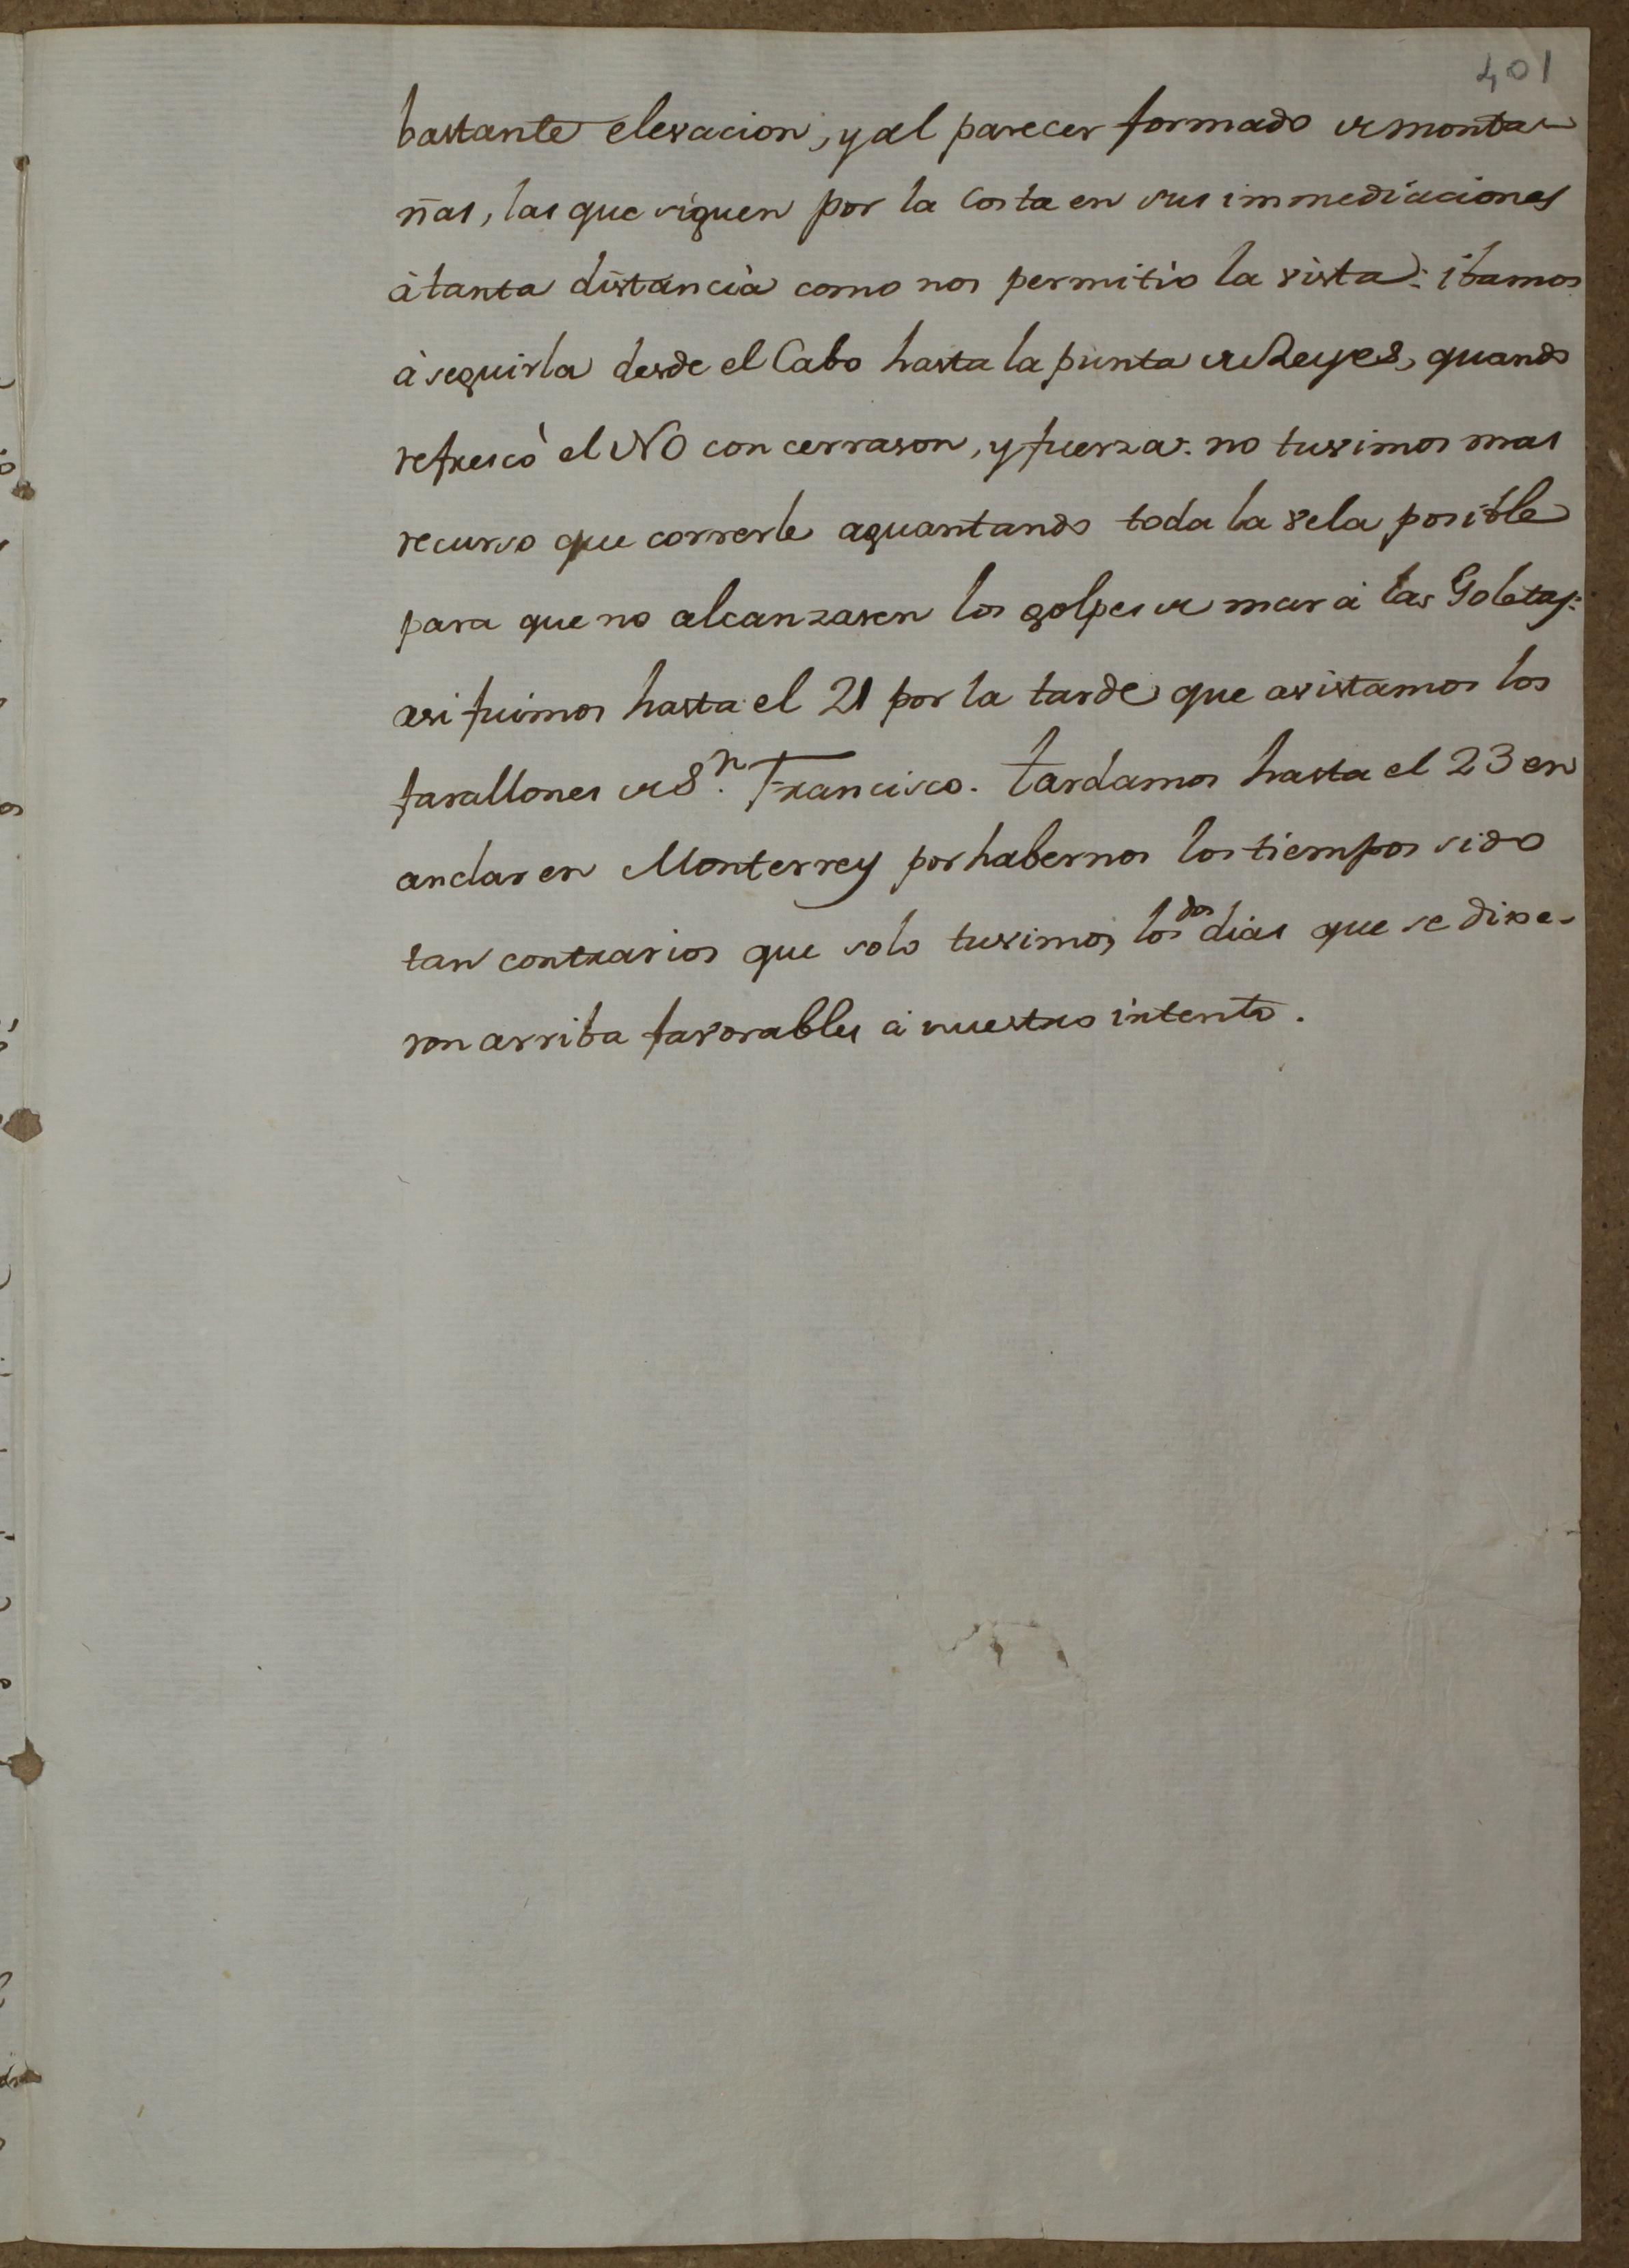 401
bastante elevacion, y al parecer formado de monta-
ñas, las que siguen por la Costa en sus immediaciones
à tanta distancia como nos permitiò la vista: ibamos
à seguirla desde el Cabo hasta la punta de Reyes, quando
refrescò el NO con cerrason, y fuerza: no tuvimos mas
recurso que correrle aguantando toda la vela posible
para que no alcanzasen los golpes de mar à las Goletas:
asi fuimos hasta el 21 por la tarde que avistamos los
farallones de Sn. Francisco. tardamos hasta el 23 en
anclar en Monterrey por habernos los tiempos sido
tan contrarios que solo tuvimos los dos dias que se dixe-
ron arriba favorables à nuestro intento.